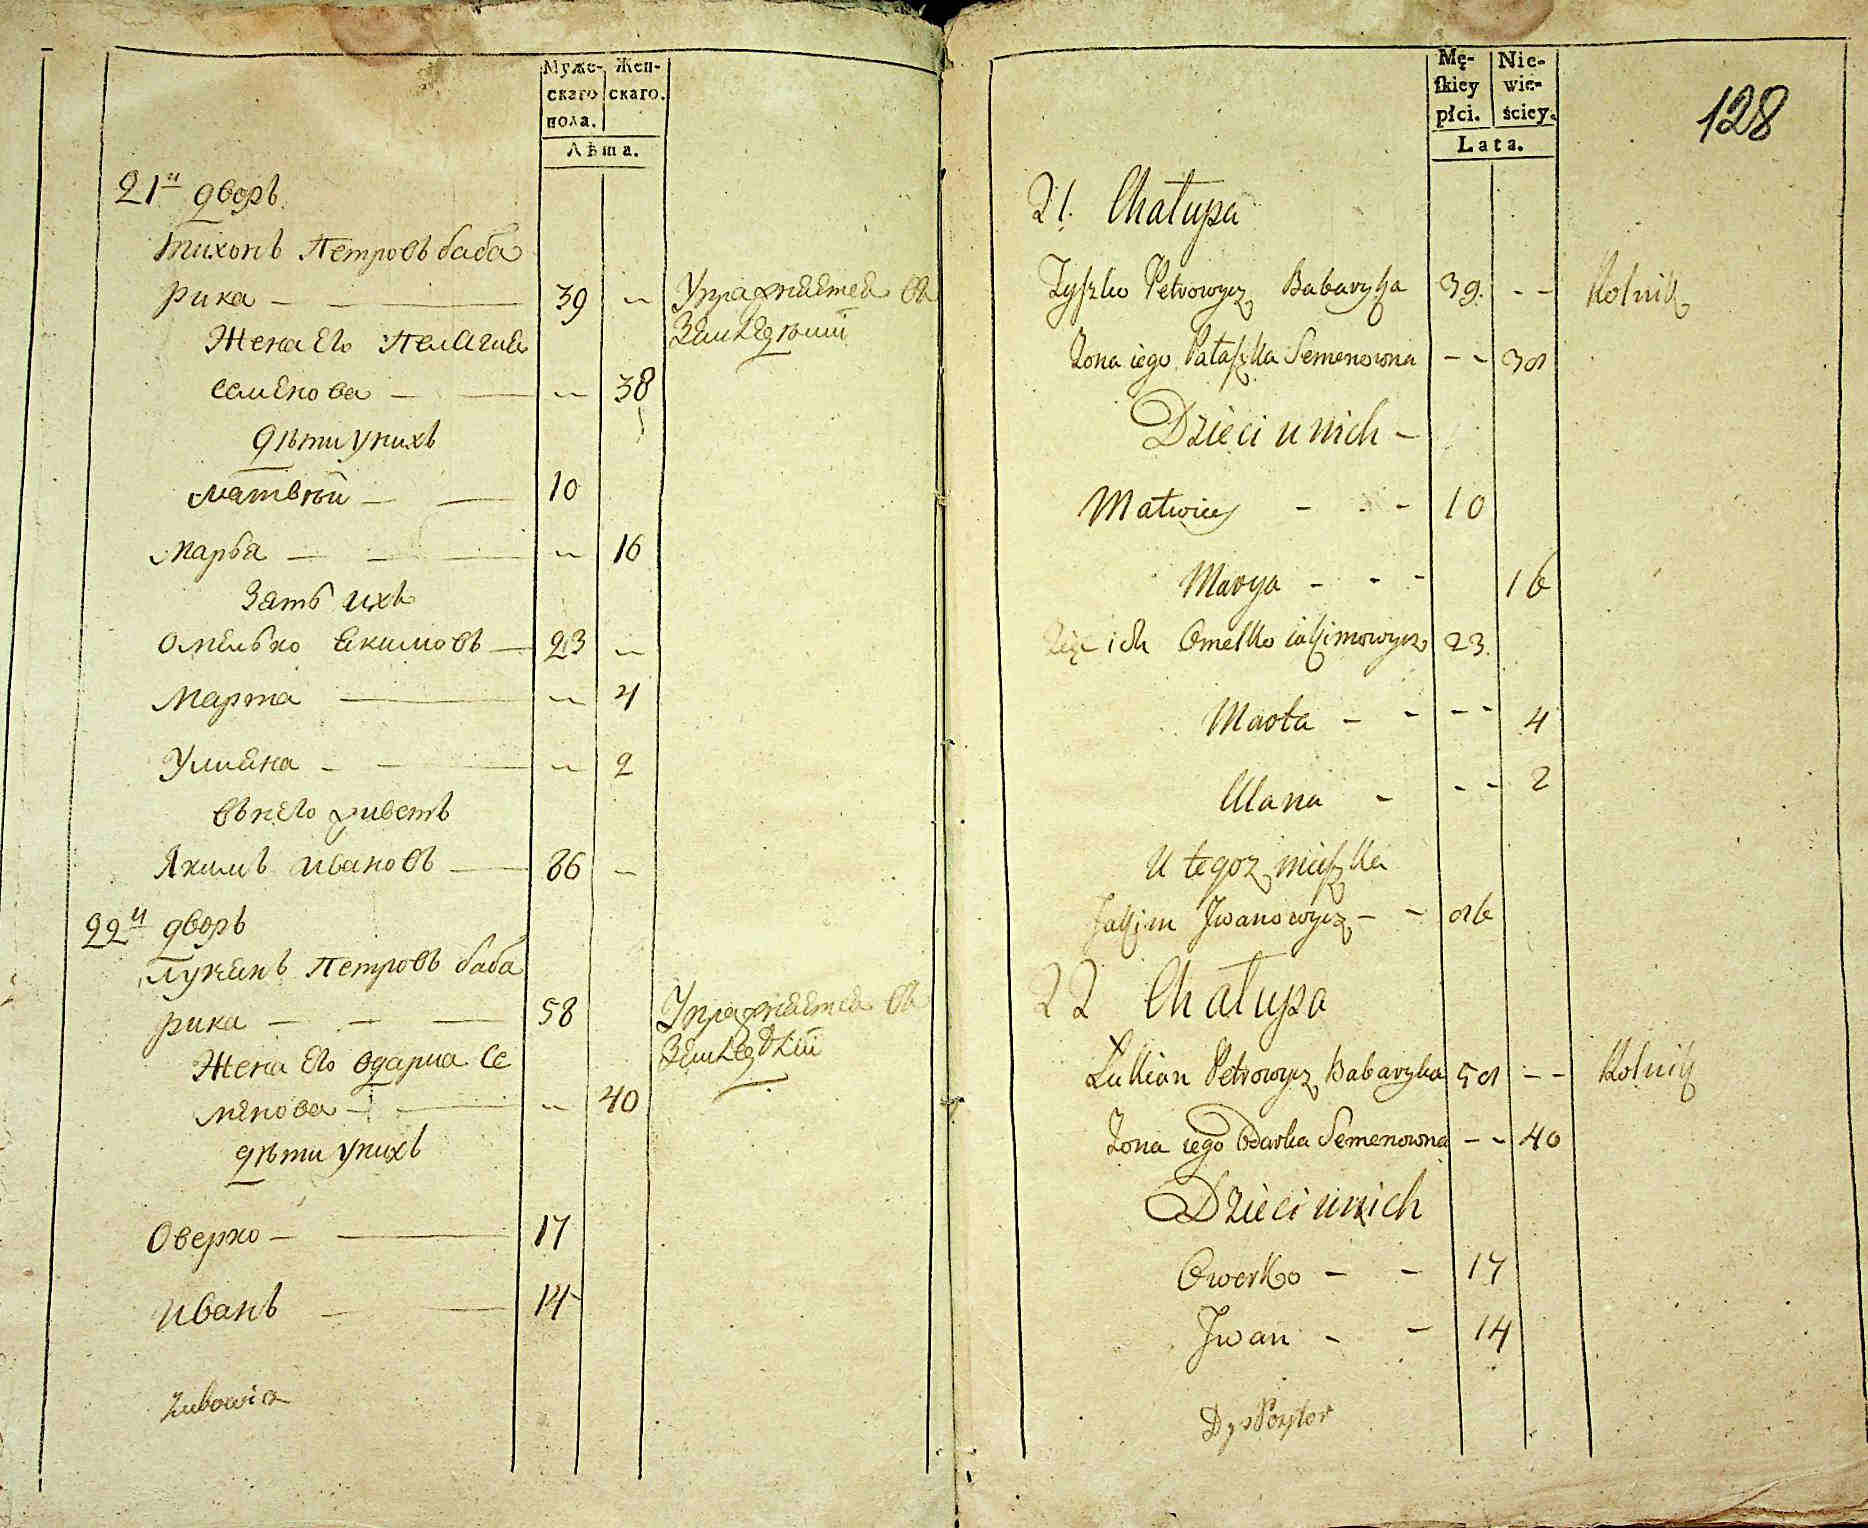 Муже- Жен-
скаго скаго.
пола.
Лѣта.
21й дворъ
Тихонъ Петровъ баба
рика — — 39 -- Упражняется въ
Земледѣліи
Жена его Пелагия
семенова — — -- 38
дѣти у нихъ
Матвѣй — — 10
Марья — — — -- 16
Зять ихъ
Омелько Екимовъ — 23 --
Марта — -- 4
Улияна — — -- 2
въ него живетъ
Якимъ Ивановъ — 86 --
22й дворъ
Лукянъ Петровъ баба
рика — — — 58 Упражняется въ
Земледѣліи
Жена его Одарка Се
менова — — -- 40
дѣти у нихъ
Оверко — — 17
Иванъ — — 14
Zubowicz
Mę- Nie-
ſkiey wie-
płci. ściey.
Lata.
128
21. Chałupa
Tyſzko Petrowycz Babaryka 39. - - Rolnik
Zona iego Pałaſzka Semenowna - - 38
Dzieci u nich -
Matwiey - - - 10
Marya - - - 16
Zięć ich Omelko Iakimowycz 23.
Marta - - - - 4
Ulana - - - 2
U tegoz mieſzka
Jakim Iwanowycz - - 86
22 Chałupa
Łukian Petrowycz Babaryka 58 - - Rolnik
Zona iego Odarka Semenowna - - 40
Dzieci u nich
Owerko - - 17
Iwan - - 14